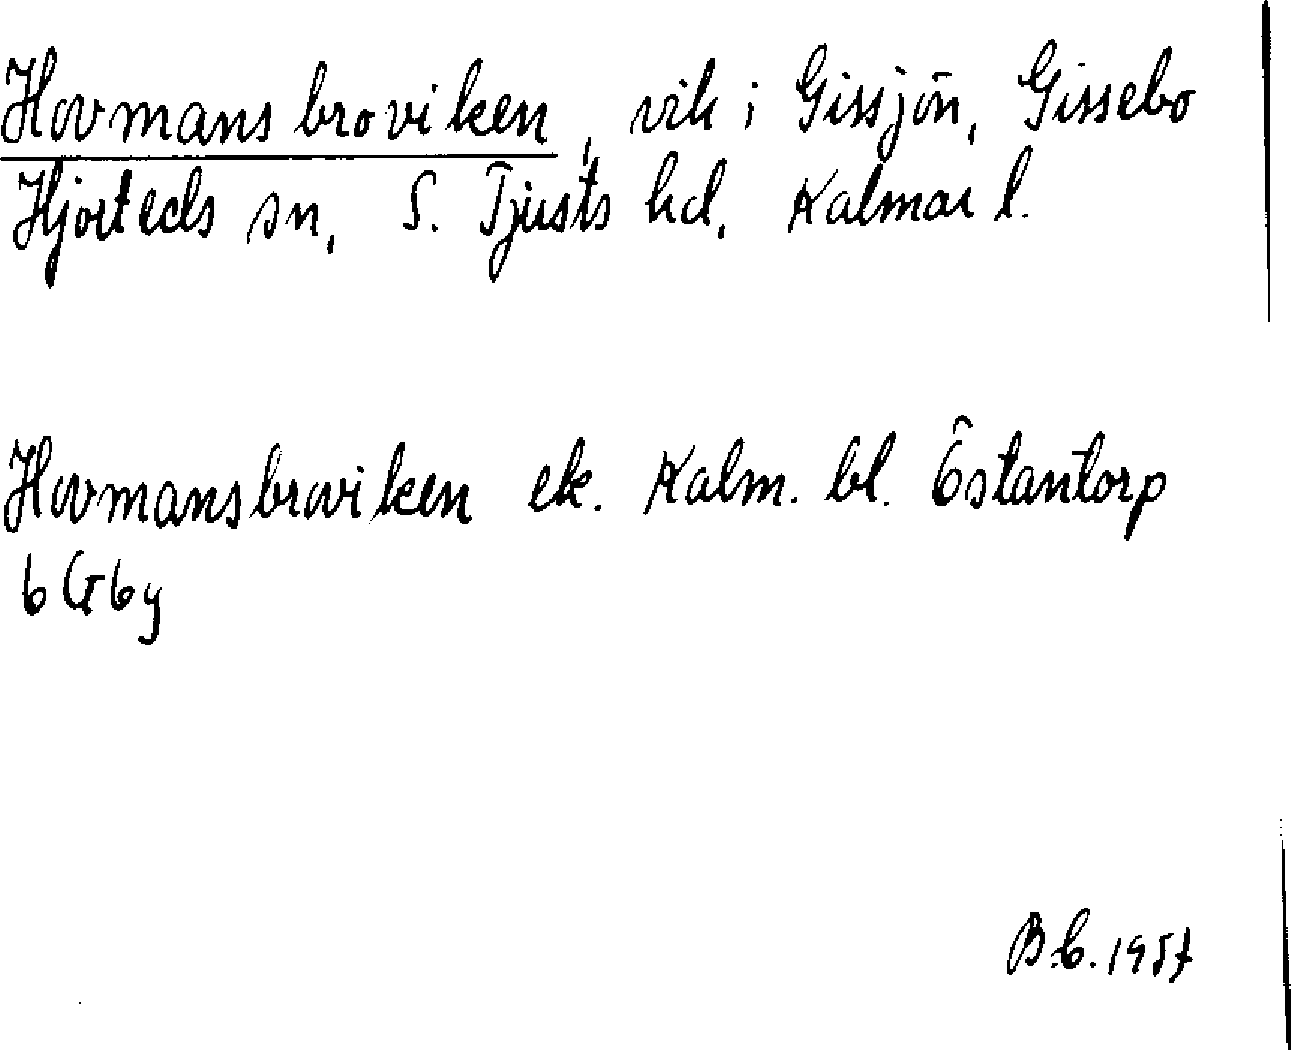 Hovmansbroviken, vik i Gissjön, Gissebo
Hjorteds sn, S. Tjusts hd, Kalmar l.
Hovmansbroviken ek. Kalm. bl. Östantorp
6 G 6 y
B.b. 1957